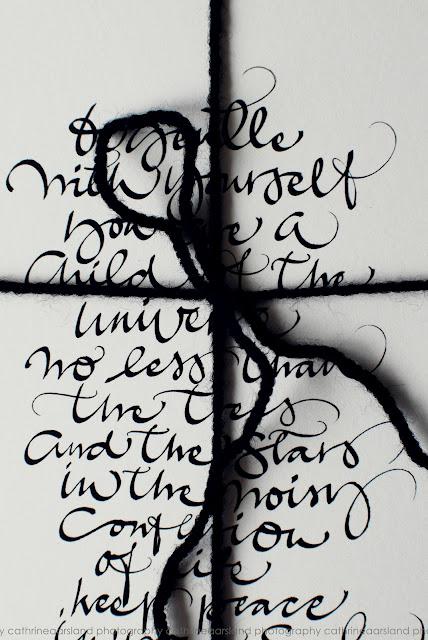 Be gentle
with yourself
you are a
child of the
universe
no less than
the trees
and the stars
in the noisy
confusion
of life
keep peace
y cathrineaarsland photography cathrineaarsland photography cathrineaarsland p